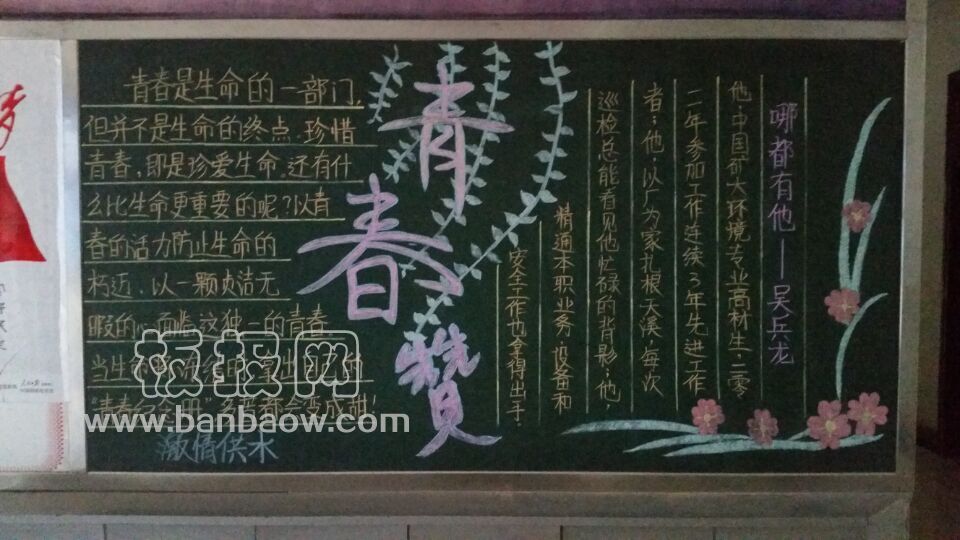 青春是生命的一部门,
但并不是生命的终点.珍惜
青春,即是珍爱生命,还有什
么比生命更重要的呢?以青
春的活力防止生命的
朽迈.以一颗贞洁无
暇的 面临这独一的青春
当生
"青春 都会变成甜!
激情供水
青春赞
哪都有他——吴兵龙
他中国矿大环境专业高材生.二零
二年参加工作连续3年先进工作
者;他,以厂为家扎根天溪,每次
巡检总能看见他忙碌的背影;他,
精通本职业务,设备和
安全工作也拿得出手.
板报网
www.banbaow.com